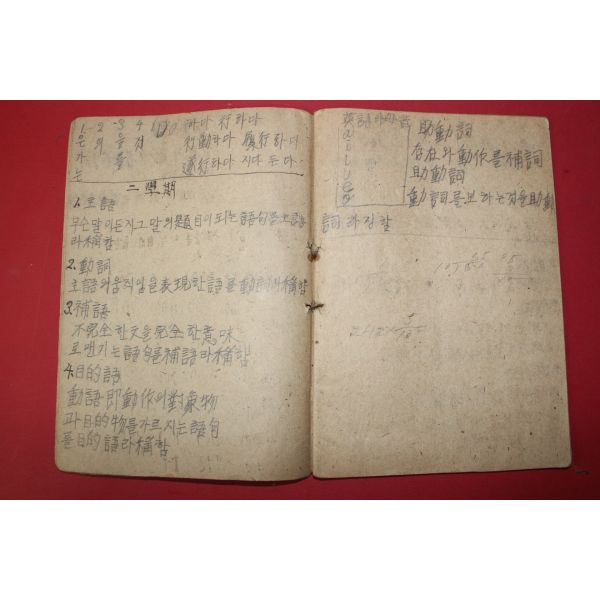 1 2 3 4 하다 行하다
은 의 을
가 를 行動하다 履行하다
는 遂行하다 지다 두다
二學期
1. 主語
무슨말이든지그말의題目이되는語句를主語
라稱함
2. 動詞
主語의움직임을表現한語를動詞라稱함
3. 補語
不完全한文을完全한意味
로맨기는語句를補語라稱함
4. 目的語
動語即動作의對象物
과目的物를가르치는語句
를目的語라稱함
英語
a
i
u
e
o
助動詞
存在와動作를補詞
助動詞
動詞를보라는것을助動
詞라칭할